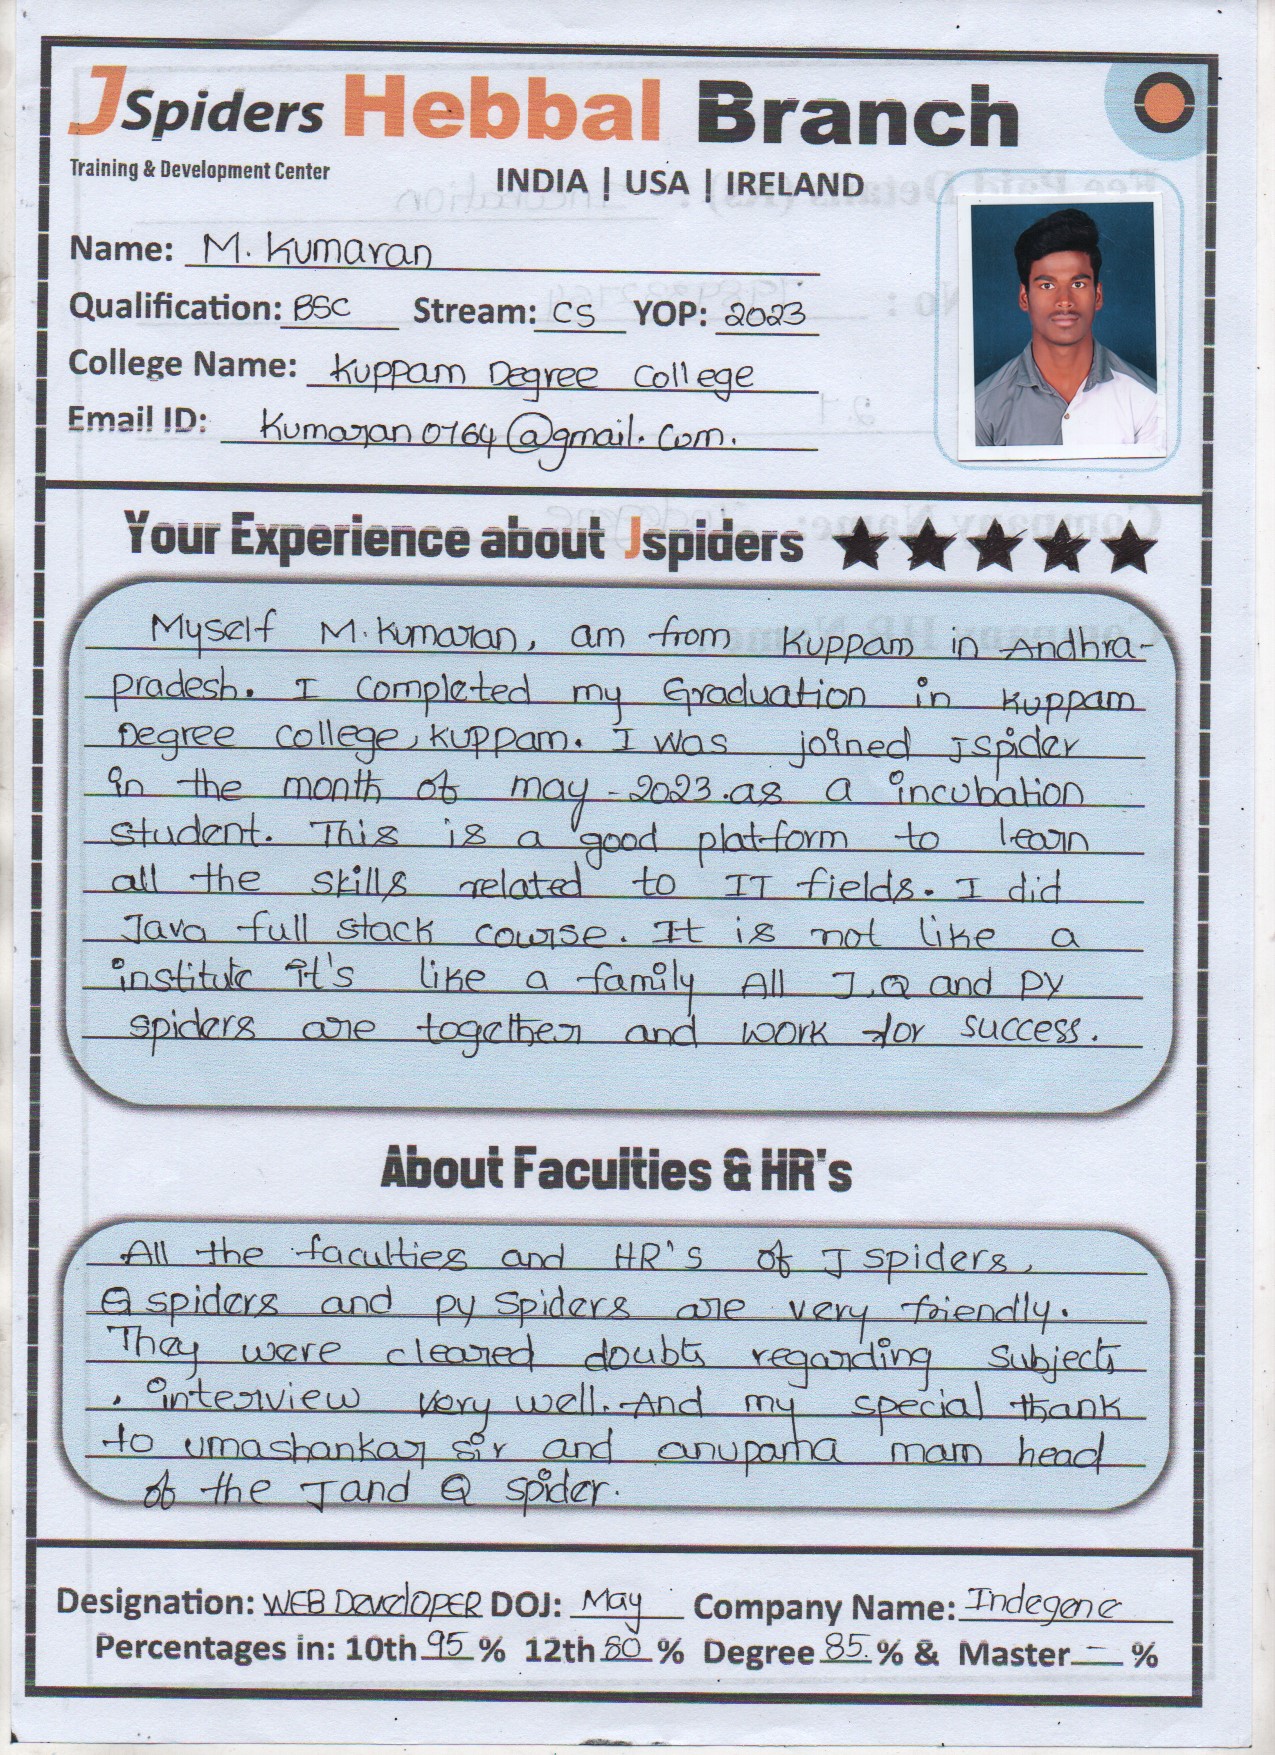 JSpiders Hebbal Branch
Training & Development Center
INDIA | USA | IRELAND
Name: M. Kumaran
Qualification: BSC Stream: CS YOP: 2023
College Name: Kuppam Degree College
Email ID: Kumaran0764@gmail.com.
Your Experience about Jspiders ★★★★★
Myself M. Kumaran, am from Kuppam in Andhra-
pradesh. I completed my Graduation in Kuppam
Degree college, Kuppam. I was joined Jspider
in the month of may - 2023. as a incubation
student. This is a good platform to learn
all the skills related to IT fields. I did
Java full stack course. It is not like a
institute it's like a family All J,Q and PY
spiders are together and work for success.
About Faculties & HR's
All the faculties and HR's of J spiders,
Q spiders and py spiders are very friendly.
They were cleared doubts regarding subjects
, interview very well. And my special thank
to umashankar sir and anupama mam head
of the J and Q spider.
Designation: WEB Developer DOJ: May Company Name: Indegene
Percentages in: 10th 95 % 12th 80 % Degree 85. % & Master – %